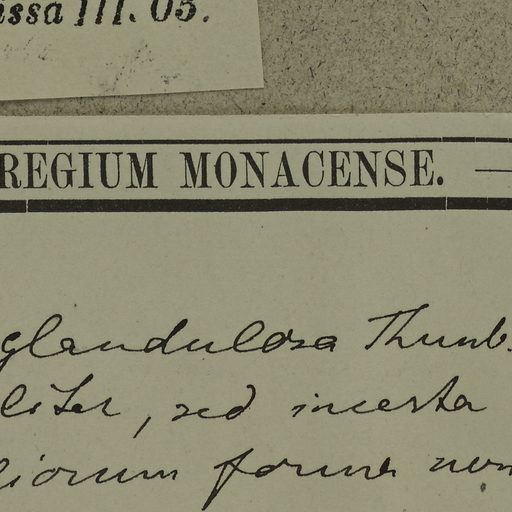 issa III. 05.
REGIUM MONACENSE. —
glandulosa Thunb.
liter, sed incerta
liorum forma non